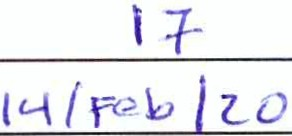 17
14/Feb/20